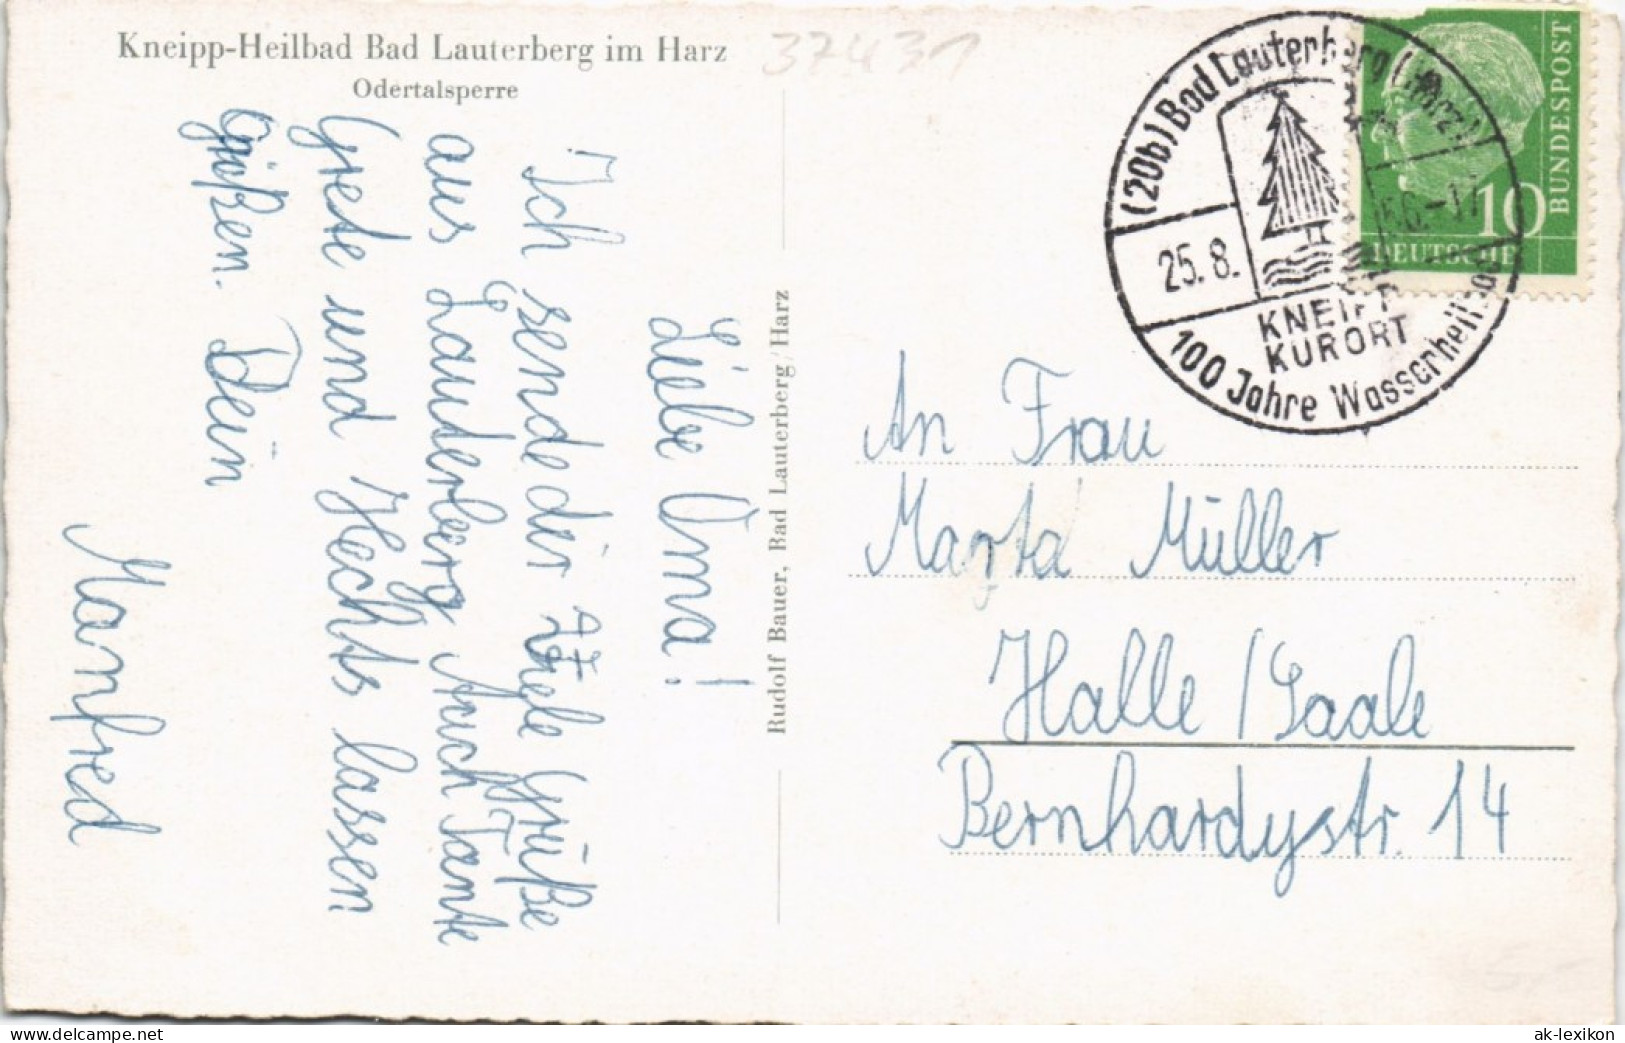 Kneipp-Heilbad Bad Lauterberg im Harz
Odertalsperre
37431
Liebe Oma!
Ich sende dir viele Grüße
aus Lauterberg Auch Tante
Grete und Hechts lassen
grüßen. Dein
Manfred
Rudolf Bauer, Bad Lauterberg/Harz
(20b) Bad Lauterberg (Harz)
25.8. 56.-17
KNEIPP
KURORT
100 Jahre Wasserheil
DEUTSCHE
BUNDESPOST
10
An Frau
Marta Müller
Halle/Saale
Bernhardystr. 14
5,-
Delcampe.net
ak-lexikon